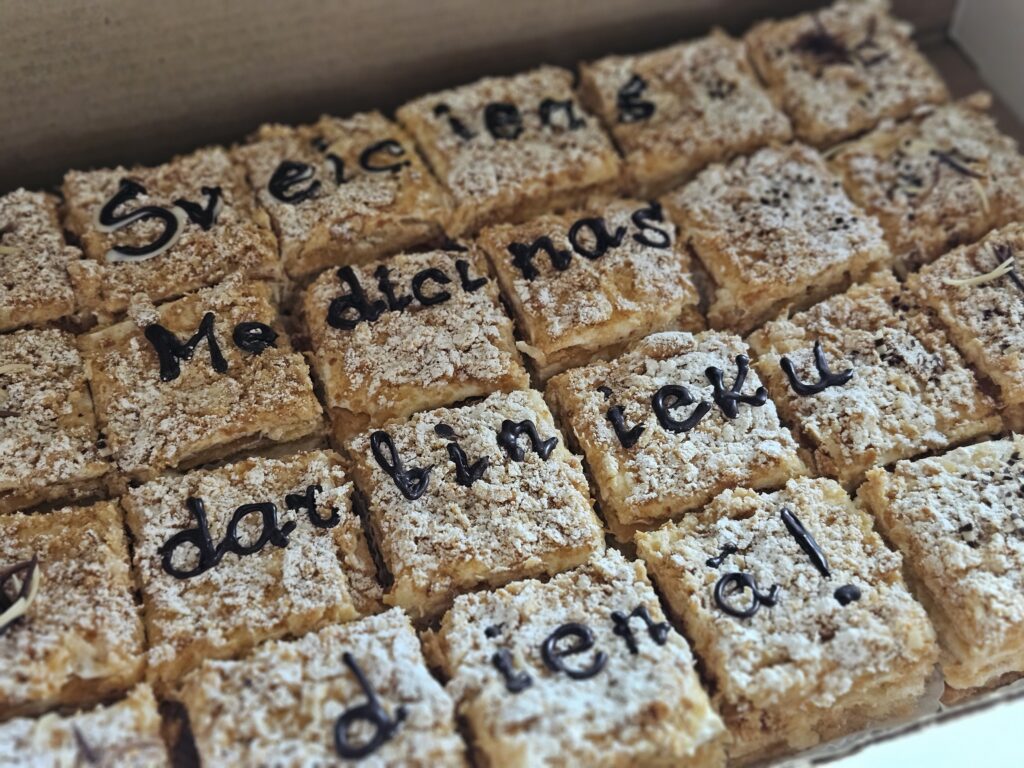 Sveiciens
Medicinas
darbinieku
dienā!